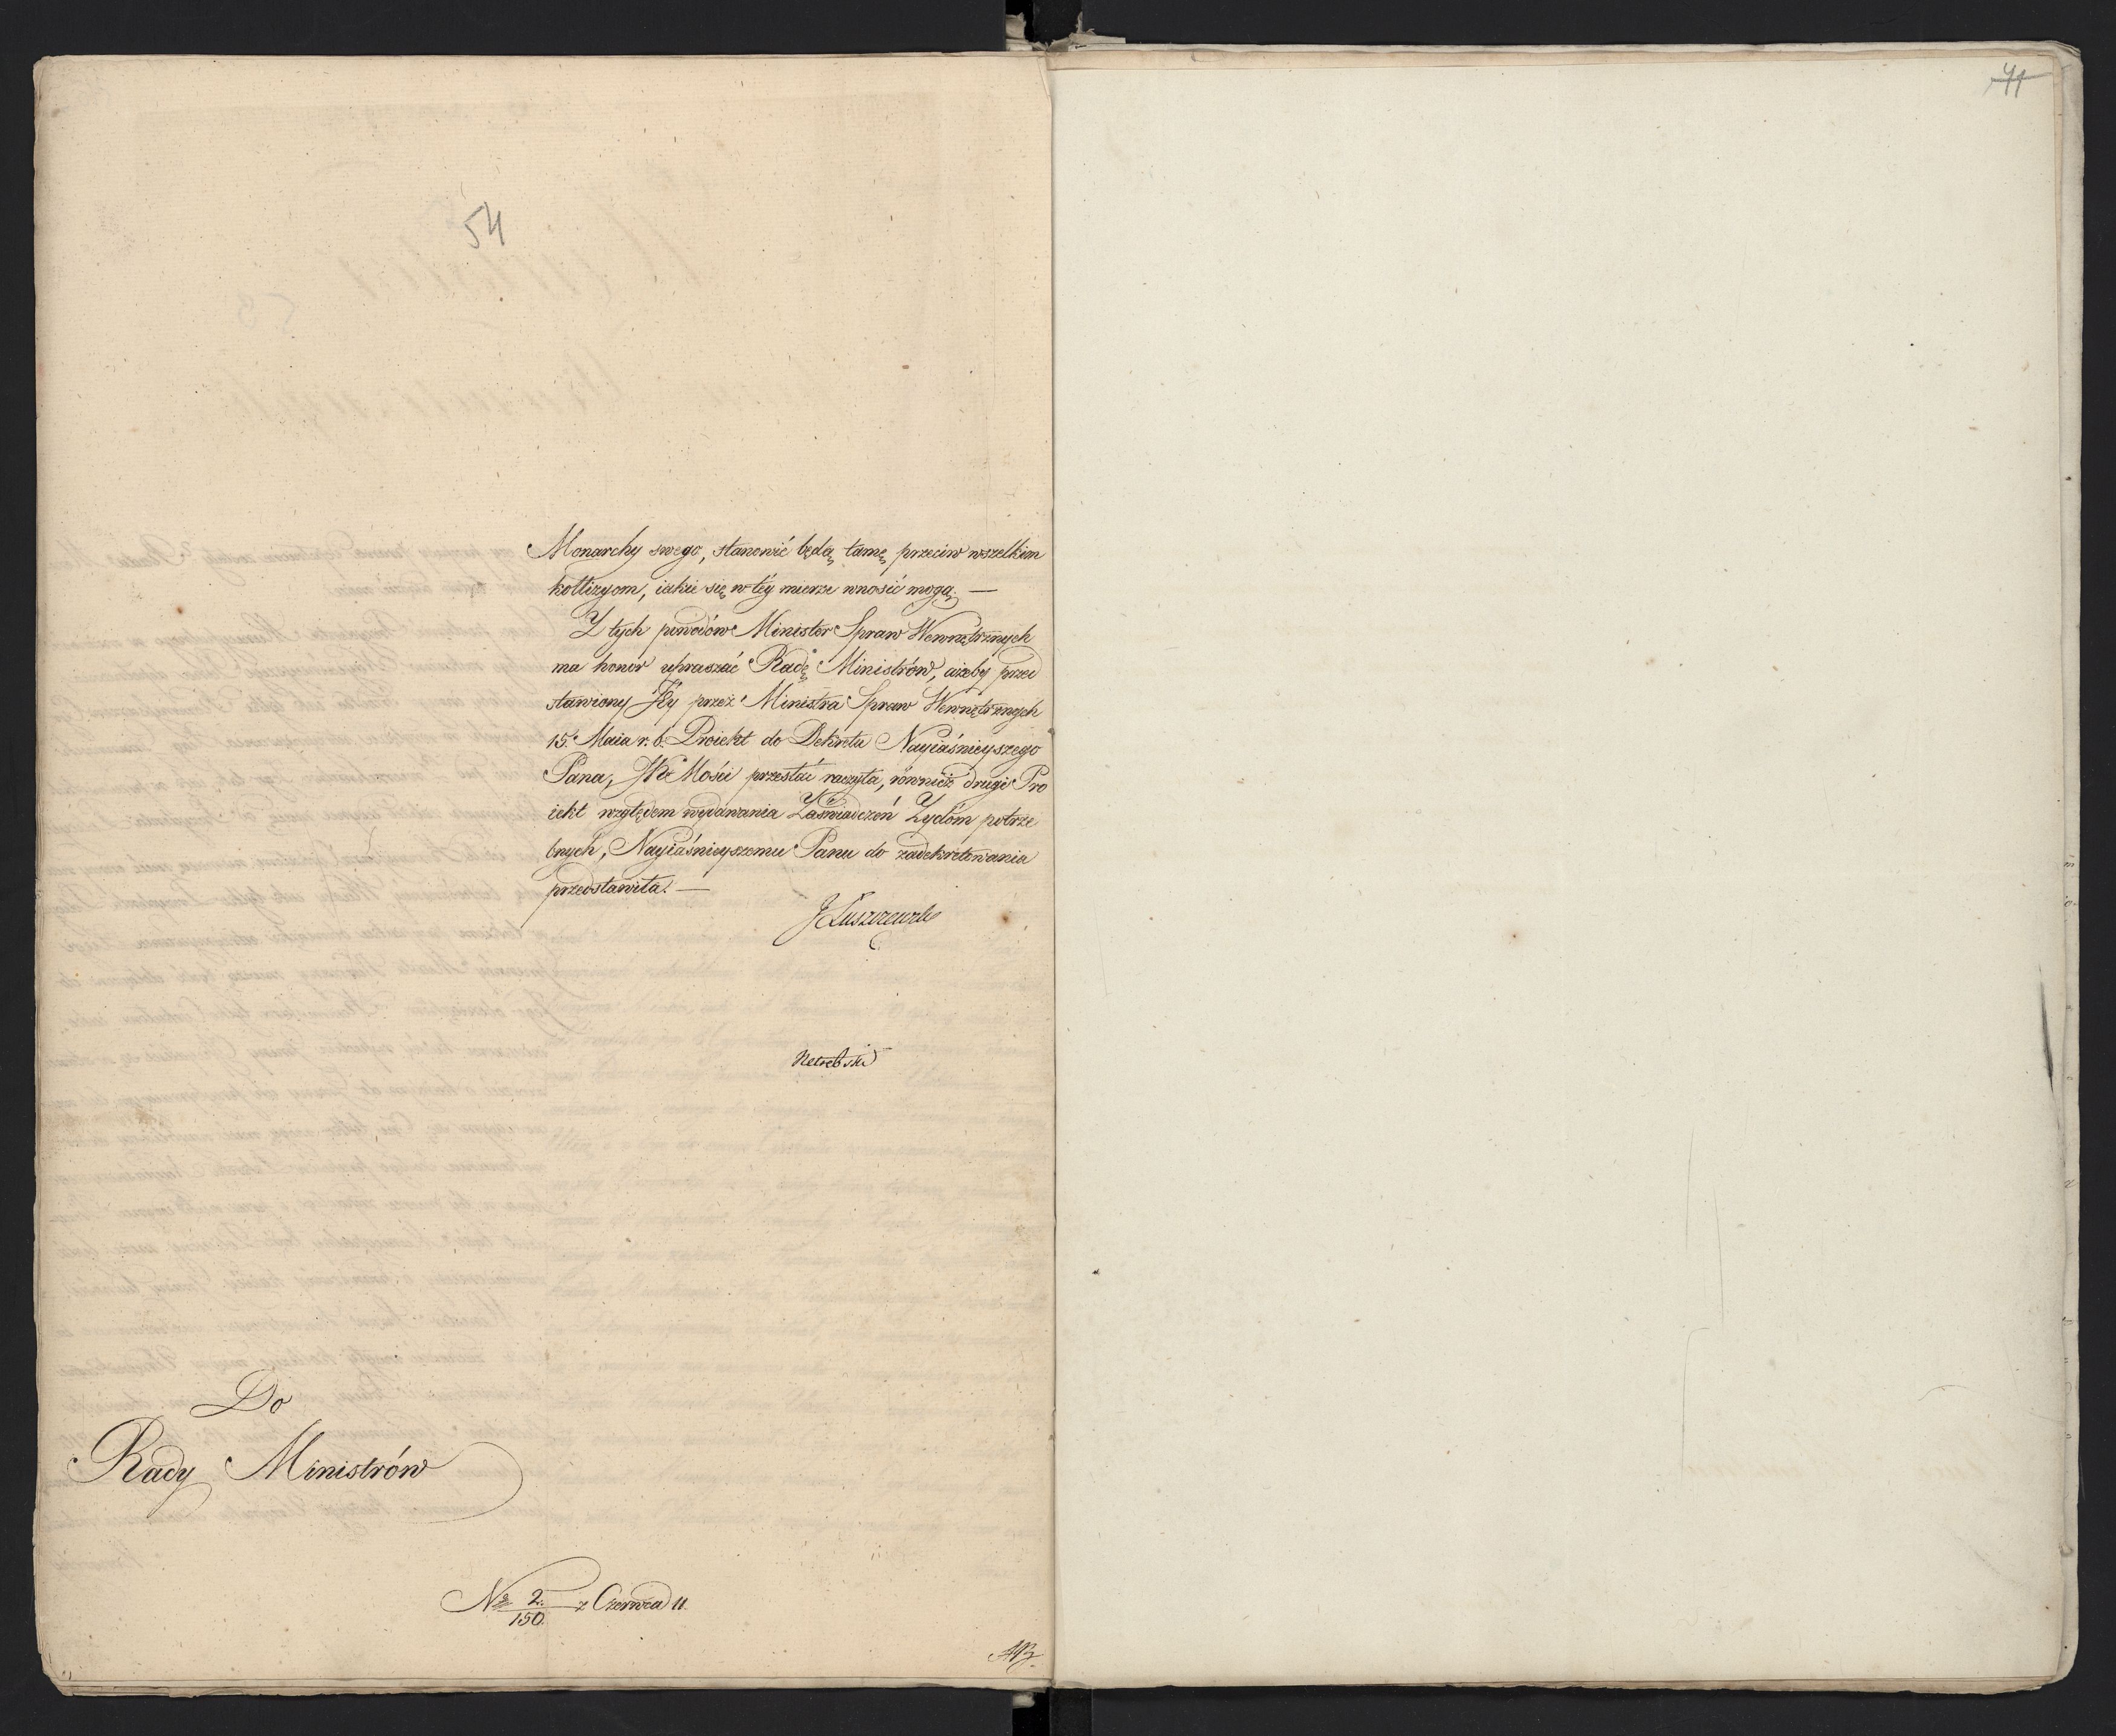 41
54
Monarchy swego, stanowić będą tamę przeciw wszelkim
kollizyom, iakie się w téy mierze wnosić mogą. —
Z tych powodów Minister Spraw Wewnętrznych
ma honor upraszać Radę Ministrów, ażeby przed
stawiony Jéy przez Ministra Spraw Wewnętrznych
15. Maia r. b. Proiekt do Dekretu Nayiaśnieyszego
Pana, Mości przesłać raczyła, również drugi Pro
iekt względem wydawania Zaświadczeń Żydom potrze
bnych, Nayiaśnieyszemu Panu do zadekretowania
przedstawiła. —
J Łuszczewski
Do
Rady Ministrów
No 2./150. z Czerwca 11.